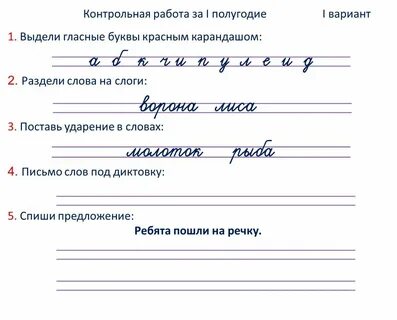 Контрольная работа за I полугодие I вариант
1. Выдели гласные буквы красным карандашом:
а б к ч и п у л е и д
2. Раздели слова на слоги:
ворона лиса
3. Поставь ударение в словах:
молоток рыба
4. Письмо слов под диктовку:
5. Спиши предложение:
Ребята пошли на речку.